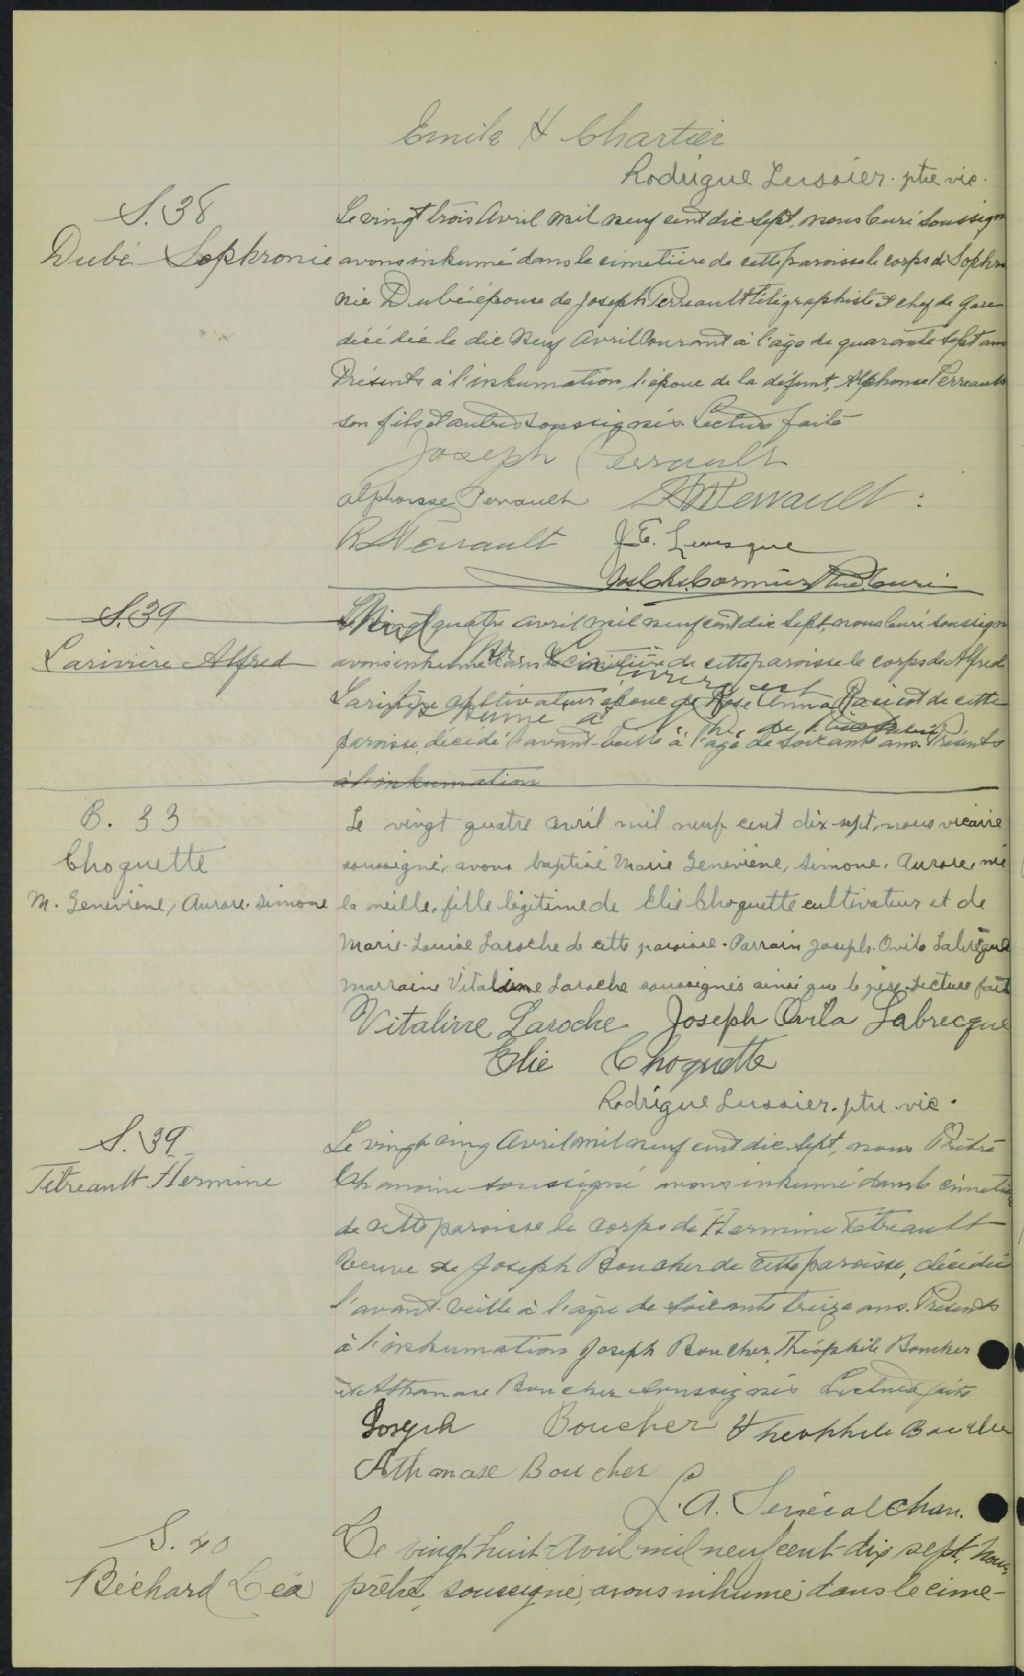 Emile H Chartier
Rodrigue Lussier. ptre vic.
S. 38
Dubé Sophronie
Le vingt trois Avril mil neuf cent dix sept, nous Curé soussign
avons inhumé dans le cimetière de cette paroisse le corps de Sophro
nie Dubé épouse de Joseph Perreault télégraphiste & chef de gare
décédée le dix neuf Avril Courant à l'âge de quarante sept ans
Présents à l'inhumation, l'époux de la défunt, Alphonse Perreault
son fils et autres soussignés. Lecture faite
Joseph Perrault
Alphonse Perrault
Perrault
Perrault J. E. Levesque
Jos. Chs. Cormier Ptre Curé
S. 39
Larivière Alfred
Le Vingt quatre avril mil neuf cent dix sept, nous Curé soussign
avons inhumé dans le cimetière de cette paroisse le corps de Alfred
Larivière cultivateur époux de Rose Anna Racicot de cette
paroisse, décédé l'avant-veille à l'âge de soixante ans. Présents
à l'inhumation
B. 33
Choquette
M. Geneviève, Aurore. Simone
Le vingt quatre avril mil neuf cent dix-sept, nous vicaire
soussigné, avons baptisé Marie Geneviève, Simone, Aurore, née
la veille, fille légitime de Elie Choquette cultivateur et de
Marie-Louise Laroche de cette paroisse. Parrain Joseph. Ovila Labrèque
marraine Vitaline Laroche soussignés ainsi que le père. Lecture faite
Vitaline Laroche Joseph Ovila Labrecque
Elie Choquette
Rodrigue Lussier. ptre vic.
S. 39
Tétreault Hermine
Le vingt-cinq Avril mil neuf cent dix sept, nous Prêtre
Chanoine soussigné avons inhumé dans le cimetiè
de cette paroisse le corps de Hermine Tétreault
veuve de Joseph Boucher de cette paroisse, décédée
l'avant-veille à l'âge de soixante treize ans. Présents
à l'inhumation Joseph Boucher, Théophile Boucher
et Athanase Boucher soussignés Lecture faite
Joseph Boucher Theophile Boucher
Athanase Boucher
L. A. Sénécal chan.
S. 40
Béchard Léa
Le vingt huit Avril mil neuf cent dix sept, nous
prêtre, soussigné, avons inhumé dans le cime-